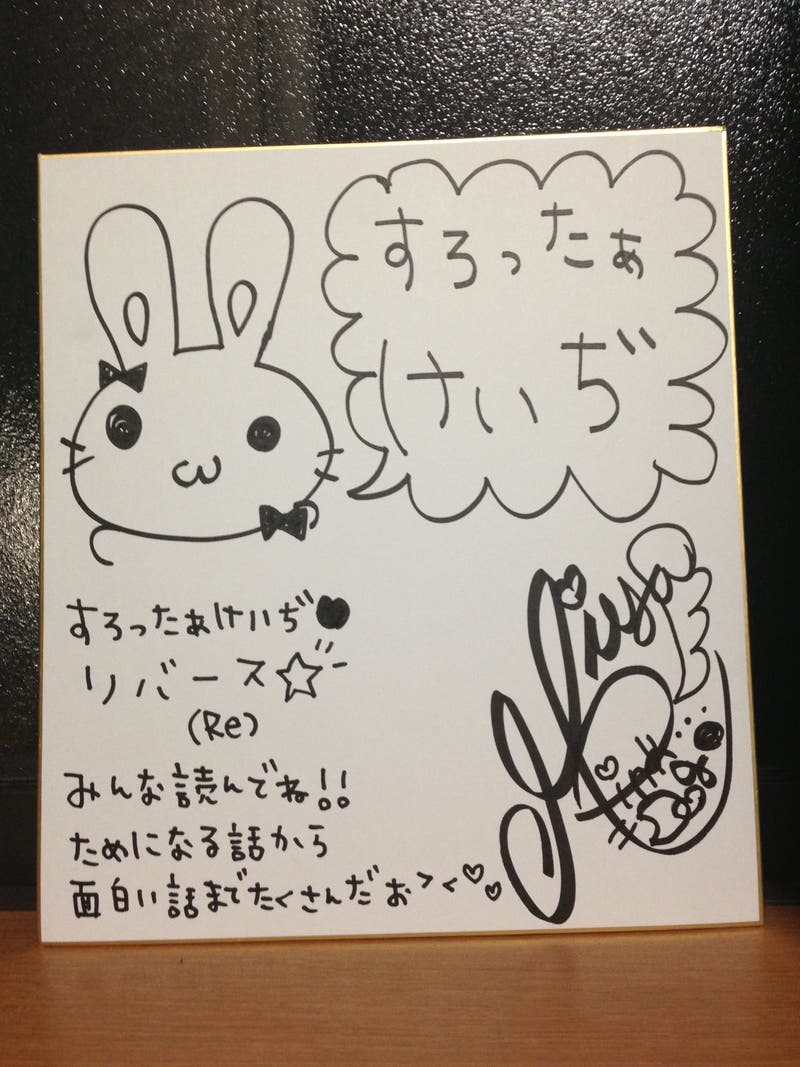 すろったぁ
けいぢ
すろったぁけいぢ♥
リバース☆
(Re)
みんな読んでね!!
ためになる話から
面白い話までたくさんだぉ＞＜♡♡